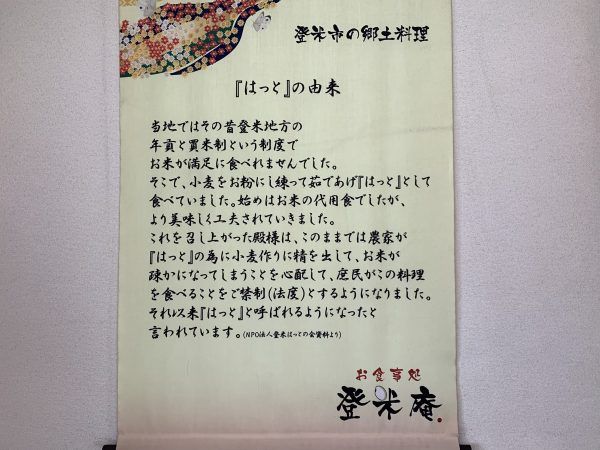 登米市の郷土料理
『はっと』の由来
当地ではその昔登米地方の
年貢と買米制という制度で
お米が満足に食べれませんでした。
そこで、小麦をお粉にし練って茹であげ『はっと』として
食べていました。始めはお米の代用食でしたが、
より美味しく工夫されていきました。
これを召し上がった殿様は、このままでは農家が
『はっと』の為に小麦作りに精を出して、お米が
疎かになってしまうことを心配して、庶民がこの料理
を食べることをご禁制(法度)とするようになりました。
それ以来『はっと』と呼ばれるようになったと
言われています。(NPO法人登米はっとの会資料より)
お食事処
登米庵